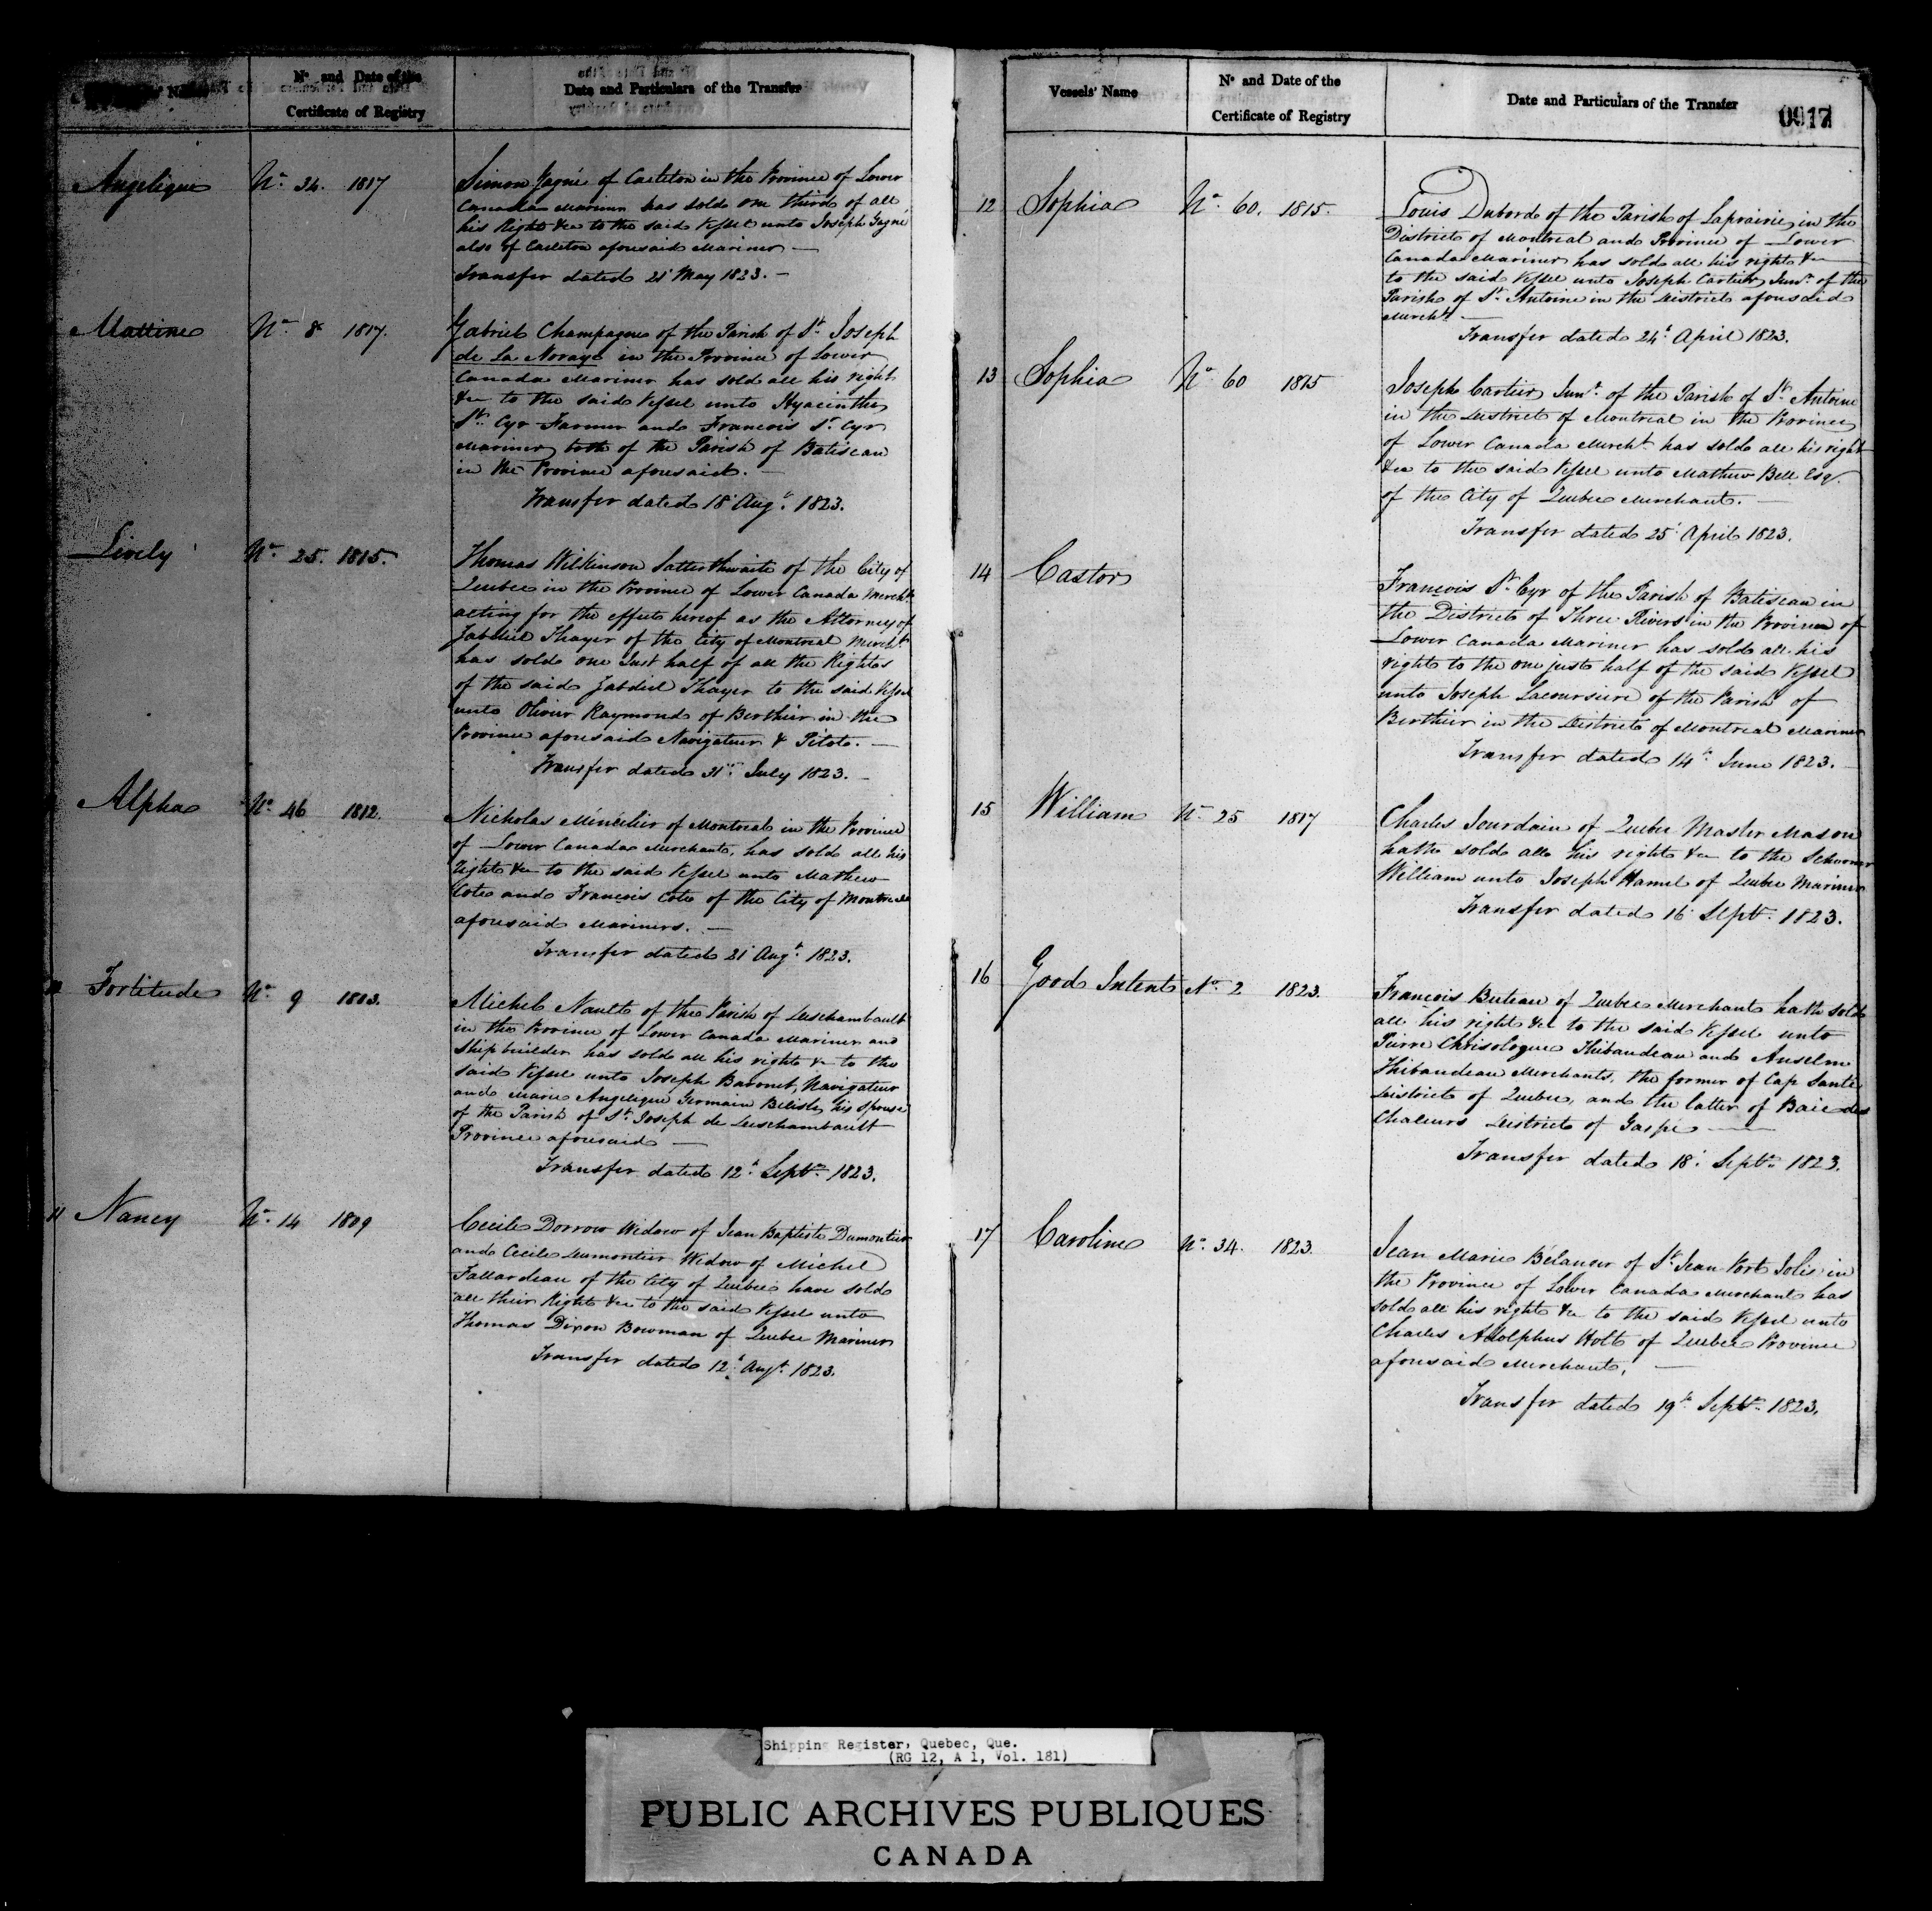 Nº and Date of the
Certificate of Registry
Date and Particulars of the Transfer
Angelique Nº 34. 1817
Simon Gagné of Carleton in the Province of Lower
Canada Mariner has sold one third of all
his Right &ca to the said Vessel unto Joseph Gagné
also of Carleton aforesaid Mariner —
Transfer dated 21 May 1823. —
Nº 8 1817.
Gabriel Champagne of the Parish of St Joseph
de La Noraye in the Province of Lower
Canada Mariner has sold all his right
&ca to the said Vessel unto Hyacinthe
St Cyr Farmer and Francois St Cyr
Mariner both of the Parish of Batiscan
in the Province aforesaid. —
Transfer dated 18 Augt 1823.
Lively Nº 25. 1815.
Thomas Wilkinson Satterthwaite of the City of
Quebec in the Province of Lower Canada Mercht
acting for the effects hereof as the Attorney of
Jabdiel Thayer of the City of Montreal Mercht
has sold one Just half of all the Rights
of the said Jabdiel Thayer to the said Vessel
unto Olivier Raymond of Berthier in the
Province aforesaid Navigateur & Pilote. —
Transfer dated 31st July 1823. —
Alpha Nº 46 1812.
Nicholas Ménéclier of Montreal in the Province
of Lower Canada Merchant, has sold all his
right &ca to the said Vessel unto Mathew
Cote and Francois Cote of the City of Montreal
aforesaid Mariners. —
Transfer dated 21 Augt 1823.
Fortitude Nº 9 1813.
Michel Nault of the Parish of Deschambault
in the Province of Lower Canada Mariner and
Shipbuilder has sold all his right &c to the
said Vessel unto Joseph Baronet, Navigateur
and Marie Angelique Germain Belisle his Spouse
of the Parish of St Joseph de Deschambault
Province aforesaid —
Transfer dated 12th Septr 1823.
11 Nancy Nº 14 1809
Cecile Dorrow Widow of Jean Baptiste Dumontier
and Cecile Dumontier Widow of Michel
Fallardeau of the City of Quebec have sold
all their Right &ca to the said Vessel unto
Thomas Dixon Bowman of Quebec Mariner
Transfer dated 12th Augt 1823.
Vessels' Name
Nº and Date of the
Certificate of Registry
Date and Particulars of the Transfer
0017
12 Sophia Nº 60. 1815.
Louis Dubord of the Parish of Laprairie, in the
District of Montreal and Province of Lower
Canada Mariner has sold all his right &ca
to the said Vessel unto Joseph Cartier, Junr of the
Parish of St Antoine in the District aforesaid
Mercht —
Transfer dated 24th April 1823.
13 Sophia Nº 60 1815
Joseph Cartier, Junr of the Parish of St Antoine
in the District of Montreal in the Province
of Lower Canada Mercht has sold all his right
&ca to the said Vessel unto Mathew Bell Esqr
of the City of Quebec Merchant. —
Transfer dated 25 April 1823.
14 Castor
Francois St Cyr of the Parish of Batiscan in
the District of Three Rivers in the Province of
Lower Canada Mariner has sold all his
right to the one just half of the said Vessel
unto Joseph Lacoursiere of the Parish of
Berthier in the District of Montreal Mariner
Transfer dated 14th June 1823. —
15 William Nº 25 1817
Charles Jourdain of Quebec Master Mason
hath sold all his right &ca to the Schooner
William unto Joseph Hamel of Quebec Mariner
Transfer dated 16 Septr 1823.
16 Good Intent Nº 2 1823.
Francois Buteau of Quebec Merchant hath sold
all his right &ca to the said Vessel unto
Pierre Chrisologue Thibaudeau and Anselm
Thibaudeau Merchants, the former of Cap Santé
District of Quebec, and the latter of Baie des
Chaleurs District of Gaspé —
Transfer dated 18 Septr 1823.
17 Caroline Nº 34. 1823.
Jean Marie Bélanger of St Jean Port Jolie in
the Province of Lower Canada Merchant has
sold all his right &ca to the said Vessel unto
Charles Adolphus Holt of Quebec Province
aforesaid Merchant, —
Transfer dated 19th Septr 1823.
Shipping Register, Quebec, Que.
(RG 12, A 1, Vol. 181)
PUBLIC ARCHIVES PUBLIQUES
CANADA